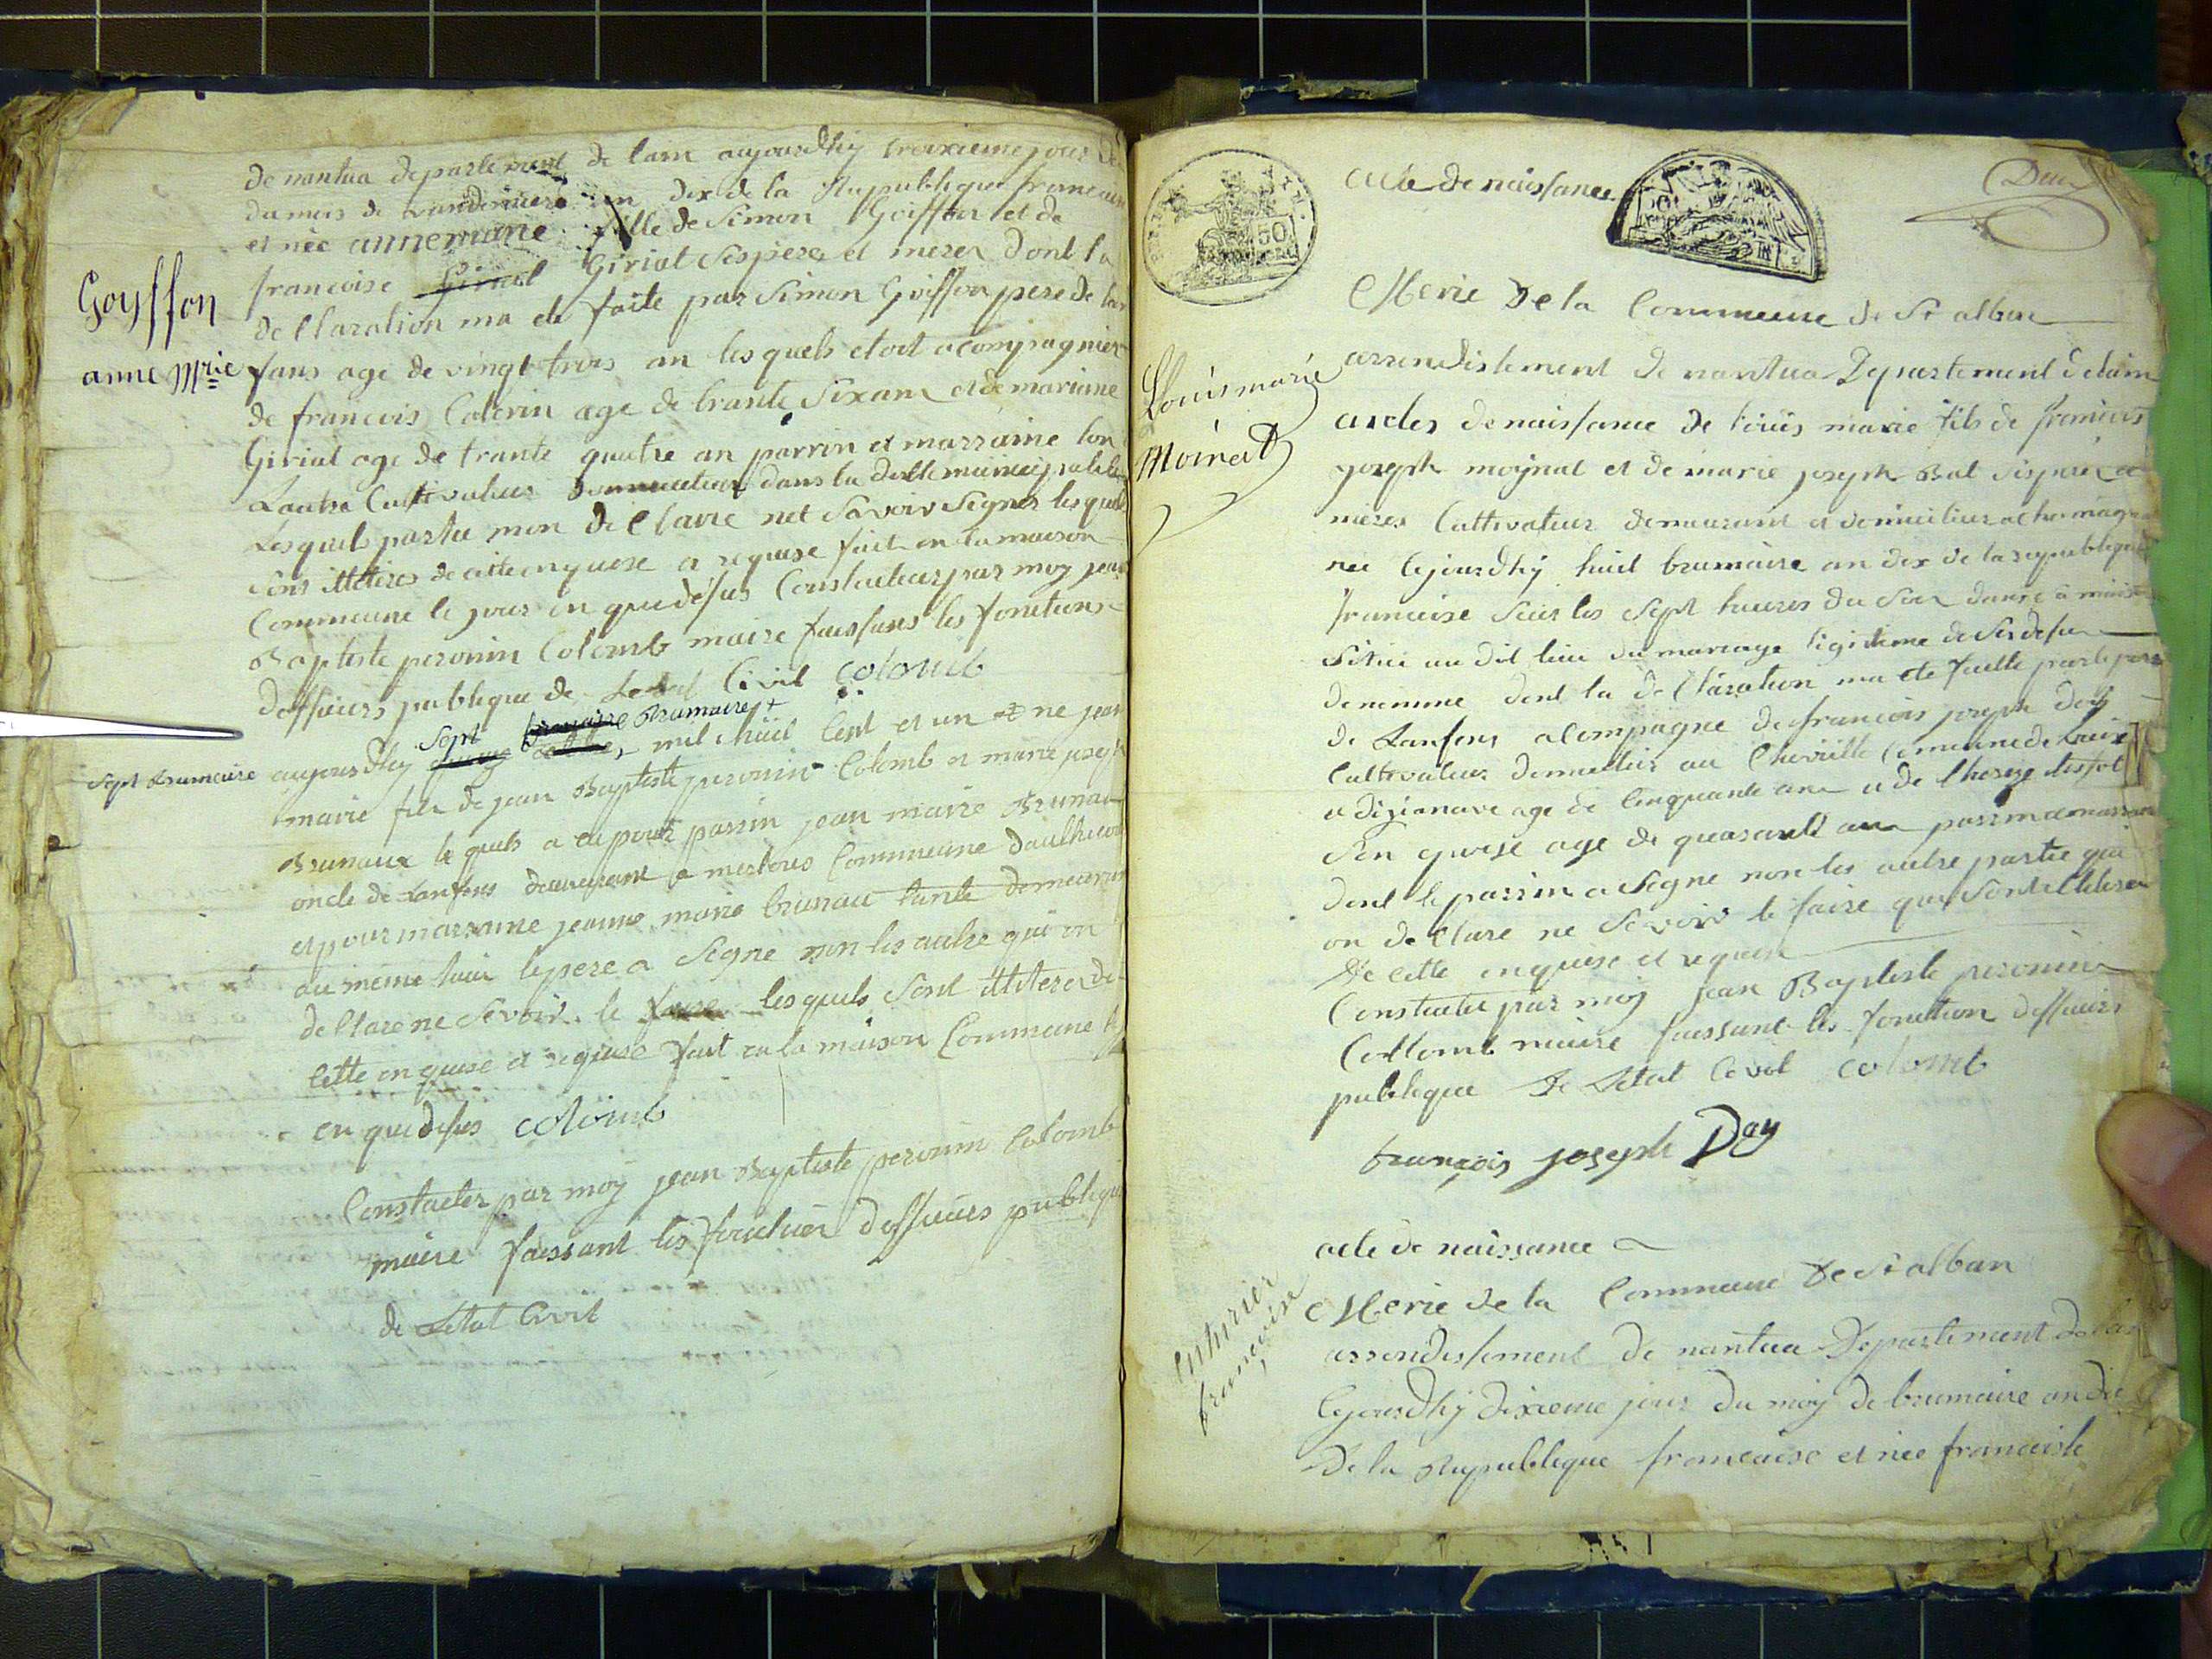 de nantua departement de lain aujourdhÿ troixieme jour de
du mois de vandemiere an dex de la Republique francaise
et née annemarie fille de Simon Goiffon et de
francoise Giriat Giriat Ses pere et merer dont la
Goyffon
declaration ma ete faite par Simon Goiffon pere de lan
anne Mrie
fans age de vingt trois an les quels etoit acompagnier
de francois Coterin age de trante Six ans et de mariane
Giriat age de trante quatre an parrin et marraine lon
Lautre Cultivateur dans la ditte municipalite
Lesquels partie mon declare net Savoir Signer les quels
Sont illiteres de cette enquise a requise fait en la maison
Commeune le jour en que desus Constateur par moy jean
Baptiste peronin Colomb maire faissans les fonctions
dofficiers publique de Letat Civil colomb
Sept Brumaire
Sept brumaire
aujourdhÿ mil huit Cent et un et ne jean
marie fils de jean Baptiste peronin Colomb et marie joseph
Brunaux le quels a eu pour parrin jean marie Brunau
oncle de Lanfans demeurant a Commeune
et pour marraine jeanne marie brunau tante demeurant
au meme lieu le pere a Signe non les autre qui on
declare ne Sevoir le faire les quels Sont illiterer de
Cette enquise et requise fait en la maison Commeune le
en que desus colomb
Constater par moÿ jean Baptiste peronin Colomb
maire faissant les fonction dofficiers publique
de Letat Civil
acte de naissance
50
Deux
Merie De la Commeune de St alban
Louis marie
Moinat
arrendissement de nantua Departement delain
acctes de naissance de louis marie fils de francois
joseph moynat et de marie joseph Bal Ses perer et
merer Cultivateur demeurant et domicilier a
née Cejourdhÿ huit brumaire an dex de la republique
francoise Seur les Sept heures du Soir dans la maison
Situé au dit lieu du mariage ligitime de Ses desus
denomme dont la declaration ma ete faitte par le pere
de Lanfens acompagne de francois joseph deÿ
Cultivateur domicilier au Chevrille Commeune de
age de Cinquante an et de
Son epuise age de quarante ans parrin et marraine
dont le parrin a Segne non les autre partie qui
on declare ne Sevoir le faire que Sont illiteres
De cette enquise et requise
Constater par moÿ jean Baptiste peronin
Collomb maire faissant les fonction dofficiers
publique de Letat Cevil colomb
françois joseph Day
acte de naissance
Merie de la Commeune De St alban
françoise
arrendissement de nantua Departement de lain
Cejourdhÿ dixieme jour du moÿ de brumaire an dix
De la Republique francaise et née francoise